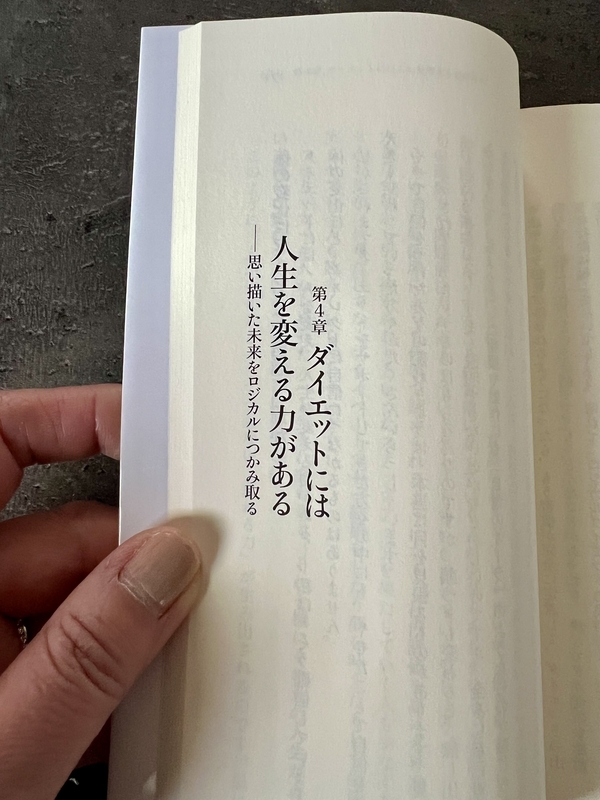 第4章 ダイエットには
人生を変える力がある
──思い描いた未来をロジカルにつかみ取る